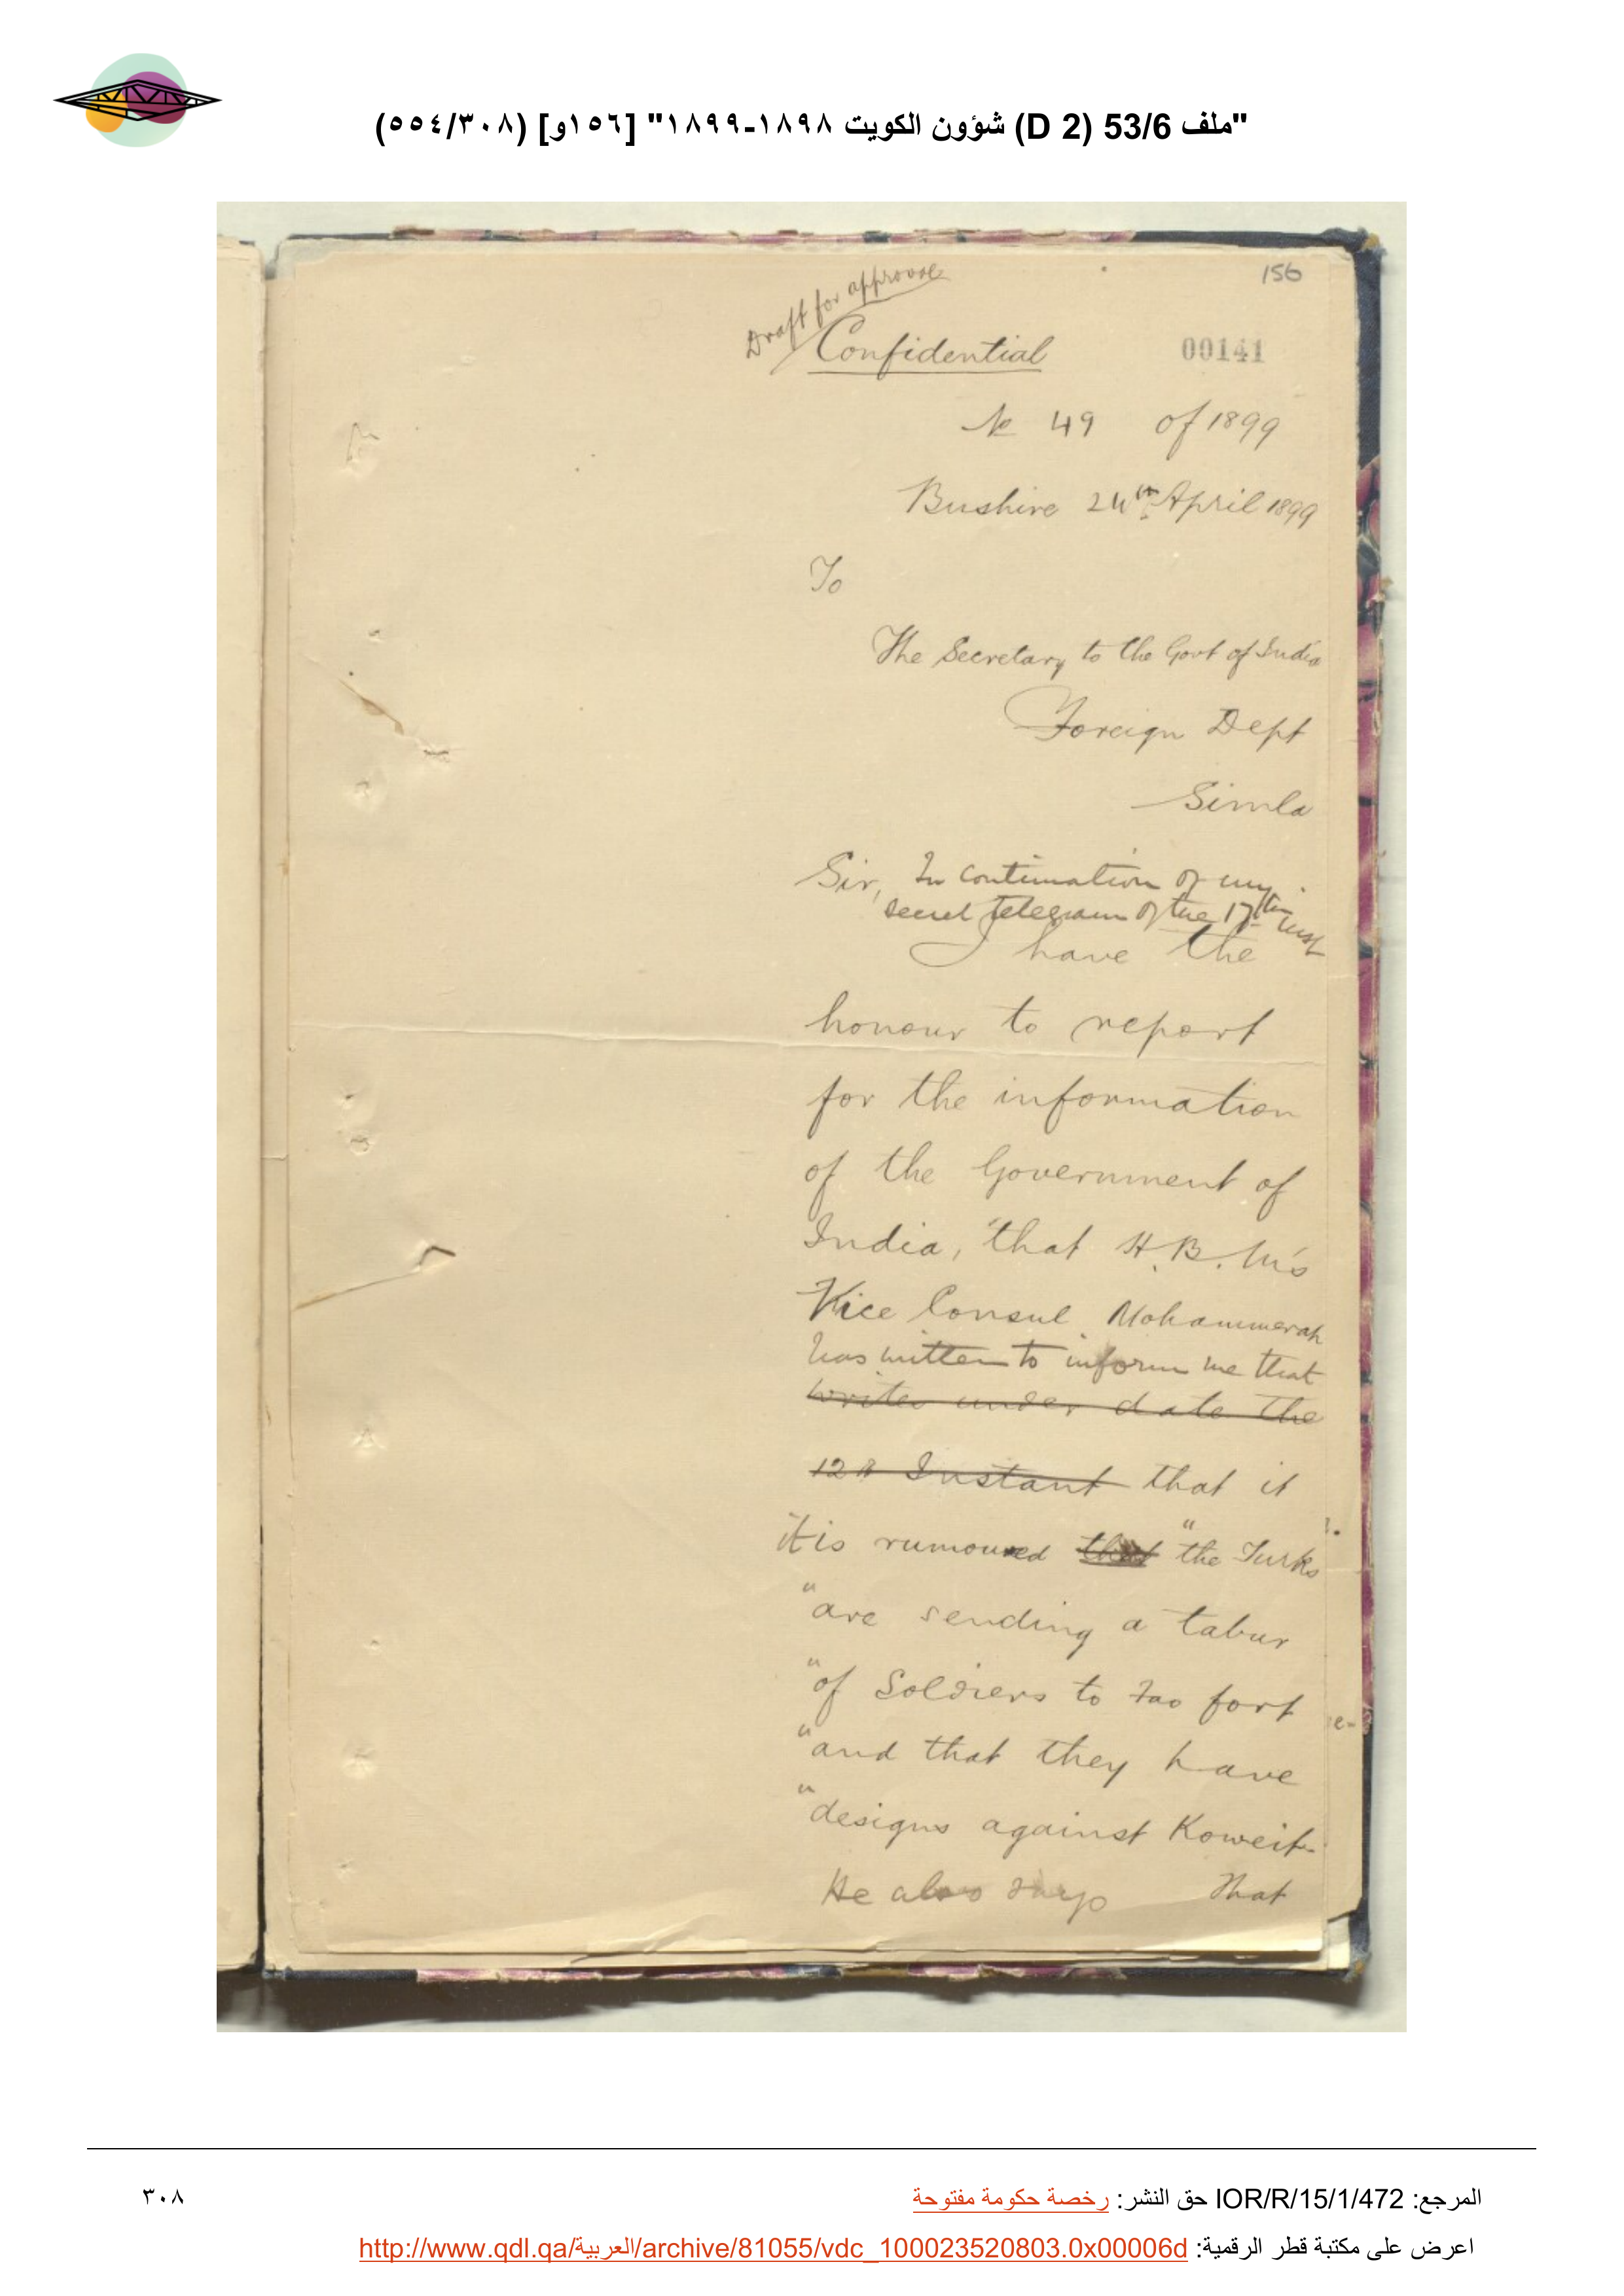 "ملف 53/6 (D 2) شؤون الكويت ١٨٩٨-١٨٩٩" [١٥٦و] (٥٥٤/٣٠٨)
156
Draft for approval
Confidential
00141
No 49 of 1899
Bushire 24th April 1899
To
The Secretary to the Govt of India
Foreign Dept
Simla
Sir, In continuation of my
secret telegram of the 17th inst
I have the
honour to report
for the information
of the Government of
India, that H.B.M's
Vice Consul Mohammerah
has written to inform me that
writes under date the
12th Instant that it
it is rumoured that "the Turks
"are sending a tabur
"of Soldiers to Fao fort
"and that they have
"designs against Koweit.
He also says that
المرجع: IOR/R/15/1/472 حق النشر: رخصة حكومة مفتوحة
٣٠٨
اعرض على مكتبة قطر الرقمية: http://www.qdl.qa/العربية/archive/81055/vdc_100023520803.0x00006d